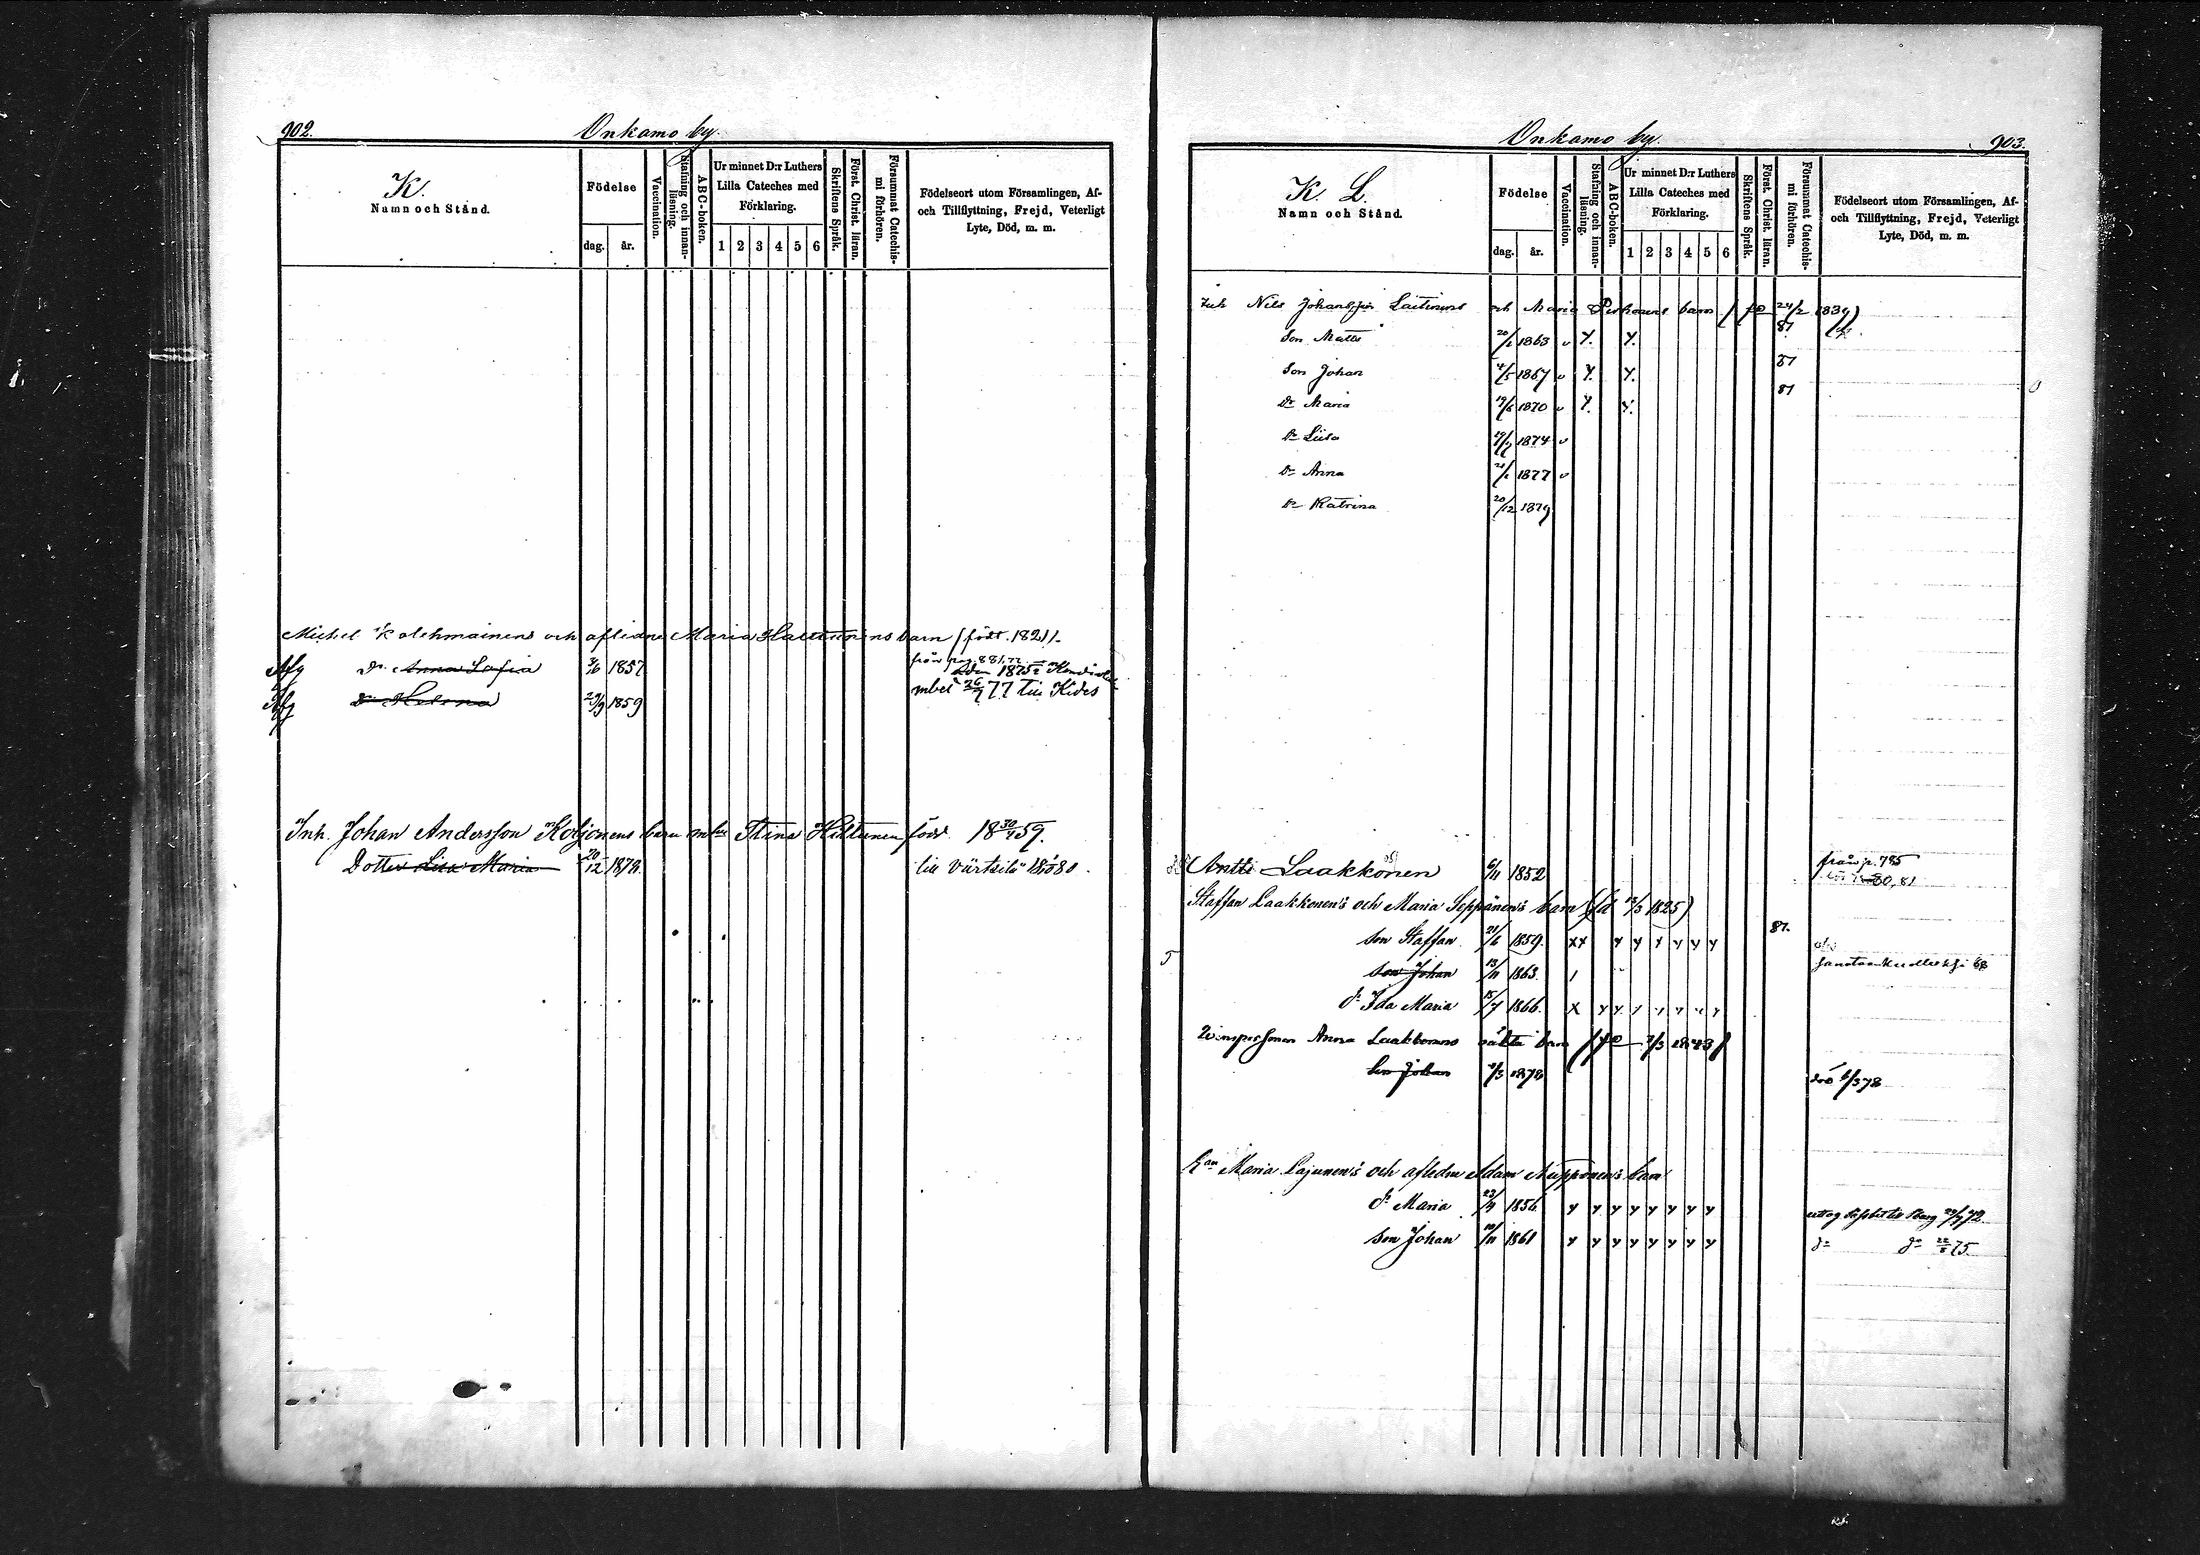 902.
Onkamo by.
K.
Namn och Stånd.
Födelse
dag. år.
Vaccination.
Stafning och innanläsning.
ABC-boken.
Ur minnet D:r Luthers Lilla Cateches med Förklaring.
1 2 3 4 5 6
Skriftens Språk.
Först. Christ. läran.
Försummat Catechismi förhören.
Födelseort utom Församlingen, Af- och Tillflyttning, Frejd, Veterligt Lyte, Död, m. m.
Michel Kolehmainens och aflidne Maria barn (födt. 1821).
Afg Dr. Anna Sofia 3/6 1857 från pag. 881,
Afg Dr Helena 29/9 1859 mbet 26/7 77 till Kides
Inh. Johan Andersson Koljonens barn m hu Stina Hiltunen född 18 30/4 59.
Dotter Lisa Maria 20/12 1878. till Värtsilä 18 80.
Onkamo by.
903.
K. L.
Namn och Stånd.
Födelse
dag. år.
Vaccination.
Stafning och innanläsning.
ABC-boken.
Ur minnet D:r Luthers Lilla Cateches med Förklaring.
1 2 3 4 5 6
Skriftens Språk.
Först. Christ. läran.
Försummat Catechismi förhören.
Födelseort utom Församlingen, Af- och Tillflyttning, Frejd, Veterligt Lyte, Död, m. m.
Inh Nils Johansson Laitinens och Maria barn (fd 24/2 1839)
Son Matts 20/1 1863 v Y. Y. 87
Son Johan 4/5 1867 v Y. Y. 87
Dr Maria 19/6 1870 v Y. Y. 87
Dr Liisa 1874 v
Dr Anna 1877 v
Dr Katrina 20/12 1879
Antti Laakkonen 6/11 1852 från p. 785
80, 81
Staffan Laakkonen's och Maria Seppänen's barn (fd 12/3 1825)
son Staffan 21/6 1859. x x y y y y y y 87.
5 son Johan 13/11 1863.
dr Ida Maria 15/7 1866. x y y y y y y y
Anna Laakkonens oäkta barn (fd 7/3 1843)
Son Johan 7/3 1878 död 6/5 78
Maria Lajunen's och afledne Adam Nupponen's barn
dr Maria 23/4 1856 y y y y y y y y
son Johan 10/11 1861 y y y y y y y y do do 22/8 75.